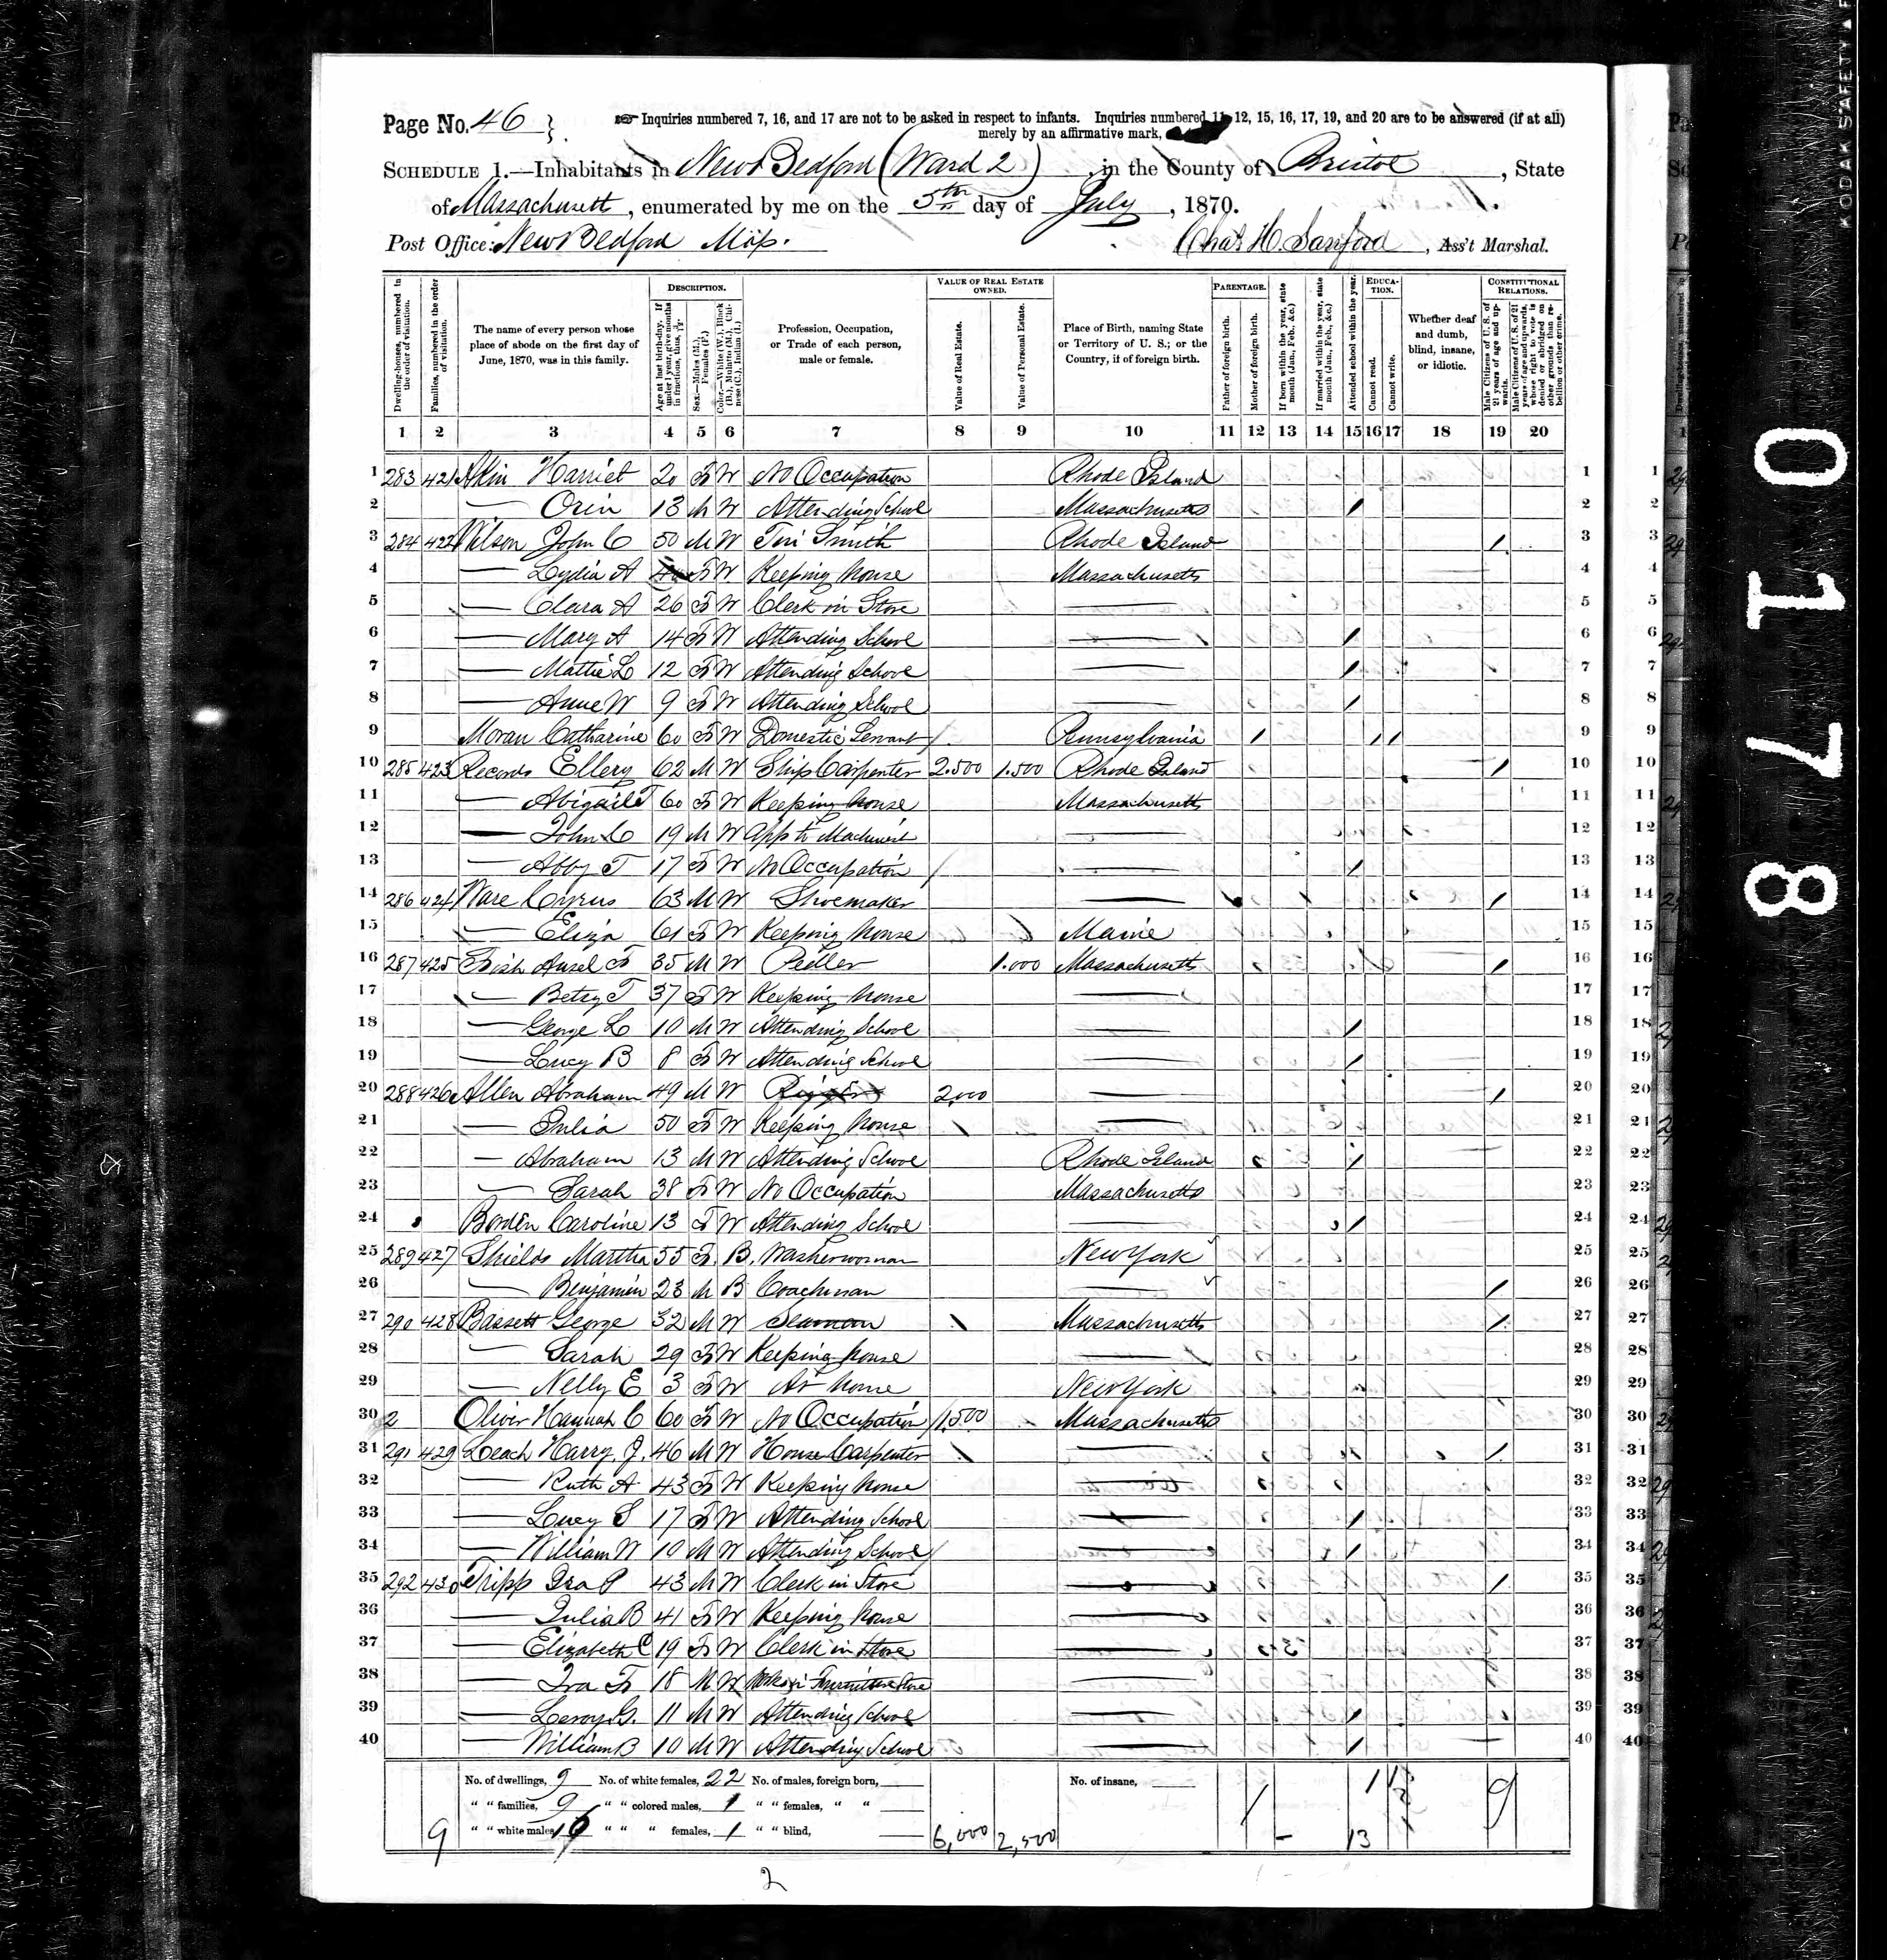 Page No. 46
Inquiries numbered 7, 16, and 17 are not to be asked in respect to infants. Inquiries numbered 11, 12, 15, 16, 17, 19, and 20 are to be answered (if at all)
merely by an affirmative mark,
SCHEDULE 1.—Inhabitants in New Bedford (Ward 2), in the County of Bristol, State
of Massachusetts, enumerated by me on the 5th day of July, 1870.
Post Office: New Bedford Mass.
Chas H. Sanford, Ass't Marshal.
DESCRIPTION. VALUE OF REAL ESTATE OWNED. PARENTAGE. EDUCATION. CONSTITUTIONAL RELATIONS.
Dwelling-houses, numbered in the order of visitation.
Families, numbered in the order of visitation.
The name of every person whose place of abode on the first day of June, 1870, was in this family.
Age at last birth-day. If under 1 year, give months in fractions, thus, 3/12.
Sex.—Males (M.), Females (F.)
Color.—White (W.), Black (B.), Mulatto (M.), Chinese (C.), Indian (I.)
Profession, Occupation, or Trade of each person, male or female.
Value of Real Estate.
Value of Personal Estate.
Place of Birth, naming State or Territory of U. S.; or the Country, if of foreign birth.
Father of foreign birth.
Mother of foreign birth.
If born within the year, state month (Jan., Feb., &c.)
If married within the year, state month (Jan., Feb., &c.)
Attended school within the year.
Cannot read.
Cannot write.
Whether deaf and dumb, blind, insane, or idiotic.
Male Citizens of U. S. of 21 years of age and upwards.
Male Citizens of U. S. of 21 years of age and upwards, whose right to vote is denied or abridged on other grounds than rebellion or other crime.
1 2 3 4 5 6 7 8 9 10 11 12 13 14 15 16 17 18 19 20
1 283 421 Akin Harriet 20 F W No Occupation Rhode Island 1
2 — Orin 13 M W Attending School Massachusetts / 2
3 284 422 Wilson John C 50 M W Tin Smith Rhode Island / 3
4 — Lydia A F W Keeping house Massachusetts 4
5 — Clara A 26 F W Clerk in Store — 5
6 — Mary A 14 F W Attending School — / 6
7 — Mattie L 12 F W Attending School — / 7
8 — Anne W 9 F W Attending School — / 8
9 Moran Catharine 60 F W Domestic Servant Pennsylvania / / / 9
10 285 423 Records Ellery 62 M W Ship Carpenter 2.500 1.500 Rhode Island / 10
11 — Abigail T 60 F W Keeping house Massachusetts 11
12 — John C 19 M W App to Machinist — 12
13 — Abby T 17 F W No Occupation — / 13
14 286 424 Ware Cyrus 63 M W Shoemaker — / 14
15 — Eliza 61 F W Keeping house Maine 15
16 287 425 Fish Ansel F 35 M W Pedler 1.000 Massachusetts / 16
17 — Betsy T 37 F W Keeping house — 17
18 — George L 10 M W Attending School — / 18
19 — Lucy B 8 F W Attending School — / 19
20 288 426 Allen Abraham 49 M W 2,000 — / 20
21 — Julia 50 F W Keeping house — 21
22 — Abraham 13 M W Attending School Rhode Island / 22
23 — Sarah 38 F W No Occupation Massachusetts 23
24 Borden Caroline 13 F W Attending School — / 24
25 289 427 Shields Martha 55 F. B. Washerwoman New York 25
26 — Benjamin 23 M B Coachman — / 26
27 290 428 Bassett George 32 M W Seaman Massachusetts / 27
28 — Sarah 29 F W Keeping house — 28
29 — Nelly E 3 F W At home New York 29
30 2 Oliver Hannah C 60 F W No Occupation 1,500 Massachusetts 30
31 291 429 Leach Harry J. 46 M W House Carpenter — / 31
32 — Ruth A 43 F W Keeping house — 32
33 — Lucy S 17 F W Attending School — / 33
34 — William W 10 M W Attending School — / 34
35 292 430 Tripp Ira P 43 M W Clerk in Store — / 35
36 — Julia B 41 F W Keeping house — 36
37 — Elizabeth C 19 F W Clerk in Store — 37
38 — Ira F 18 M W Furniture Store — 38
39 — Leroy G. 11 M W Attending School — / 39
40 — William B 10 M W Attending School — / 40
No. of dwellings, 9 No. of white females, 22 No. of males, foreign born, No. of insane,
" " families, 9 " " colored males, 1 " " females, " "
" " white males, 16 " " " females, 1 " " blind,
9 6,000 2,500 / 13 9
2
KODAK SAFETY
0178